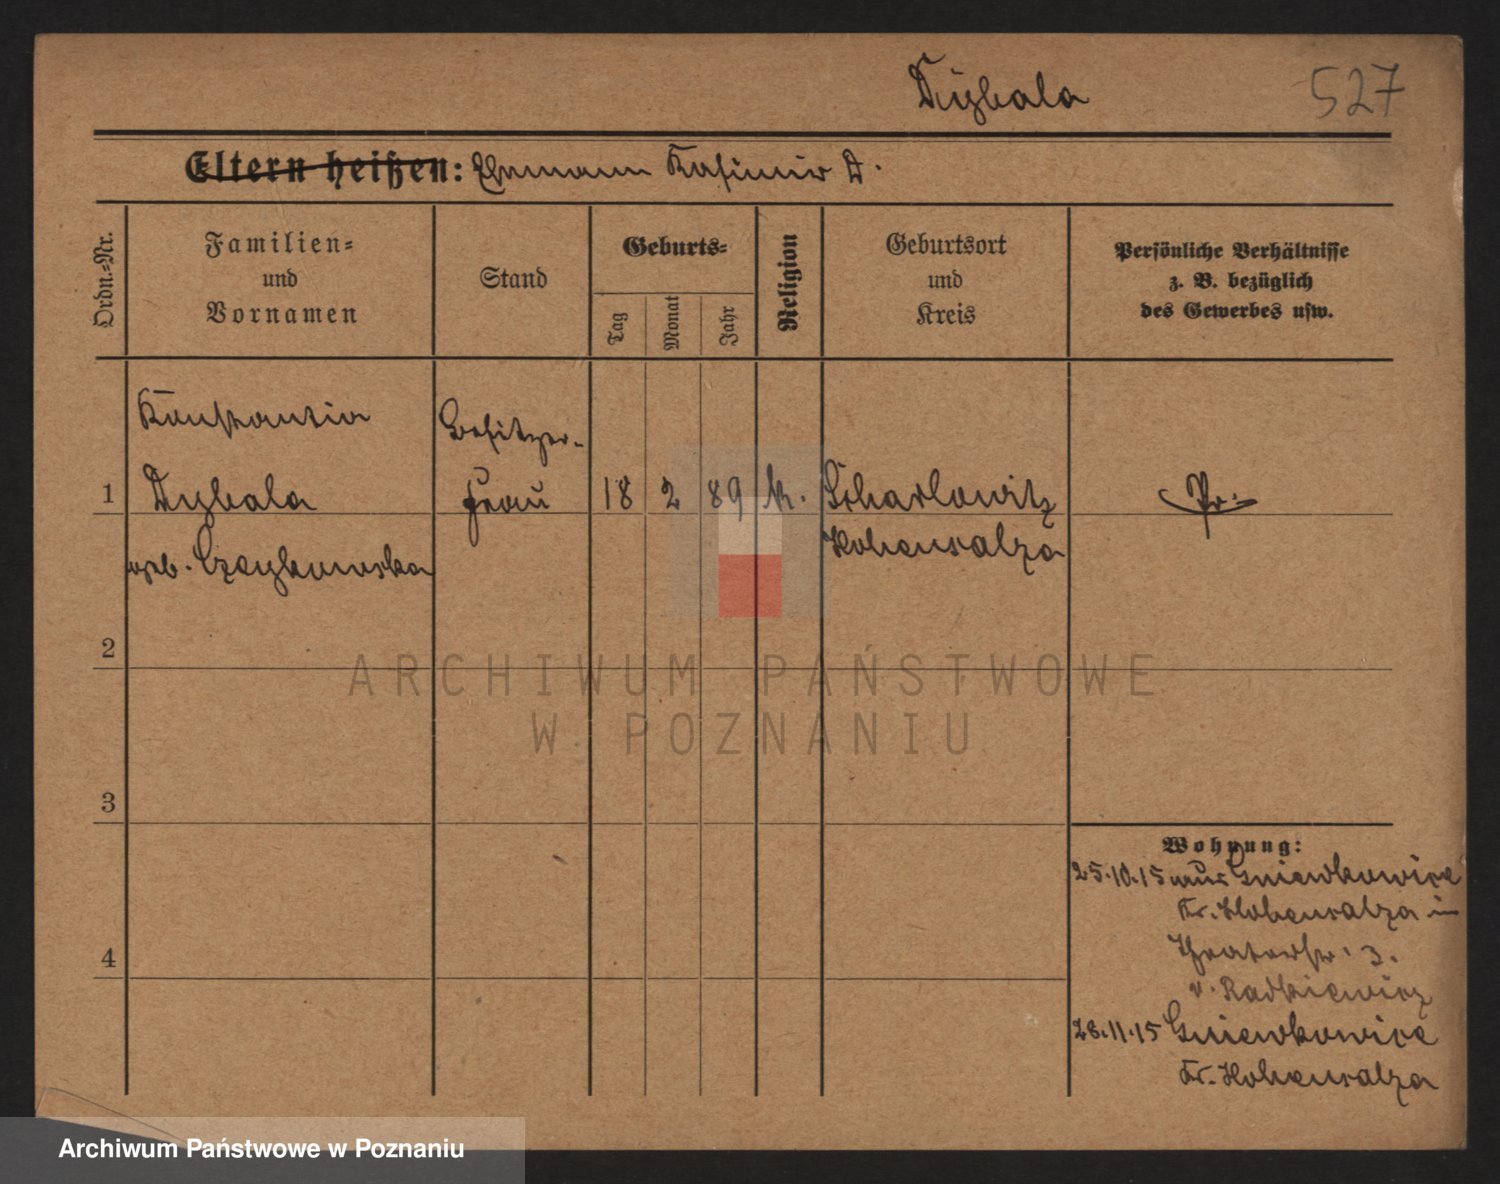 Dybala 527
Eltern heißen: Ehemann Kasimir D.
Ordn.-Nr.
Familien-
und
Vornamen
Stand
Geburts-
Tag
Monat
Jahr
Religion
Geburtsort
und
Kreis
Persönliche Verhältnisse
z. B. bezüglich
des Gewerbes usw.
Konstantia
Besitzer-
1 Dybala frau 18 2 89 k. Scharlowitz Pr.
geb. Czaykowska Hohensalza
2
3
4
Wohnung:
25.10.15 aus Gniewkowice
Kr. Hohensalza in
Theaterstr. 3.
v. Radkiewicz
28.11.15 Gniewkowice
Kr. Hohensalza
ARCHIWUM PAŃSTWOWE
W POZNANIU
Archiwum Państwowe w Poznaniu